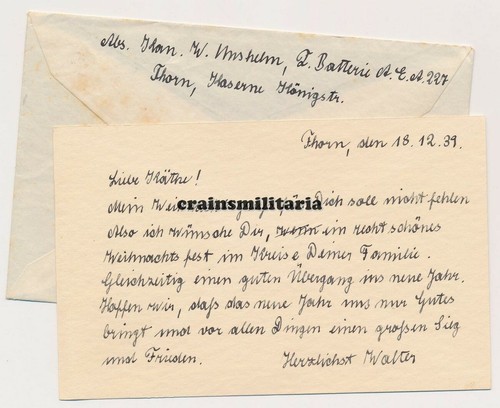 Abs. Kan. W. Umshelm, 2. Batterie A.E.A. 227
Thorn, Kaserne Königstr.
Thorn, den 18.12.39.
Liebe Käthe!
Mein Dich soll nicht fehlen
crainsmilitaria
Also ich wünsche Dir, wenn ein recht schönes
Weihnachts fest im Kreise Deiner Familie.
Gleichzeitig einen guten Übergang ins neue Jahr.
Hoffen wir, daß das neue Jahr uns nur Gutes
bringt und vor allen Dingen einen großen Sieg
und Frieden. Herzlichst Walter